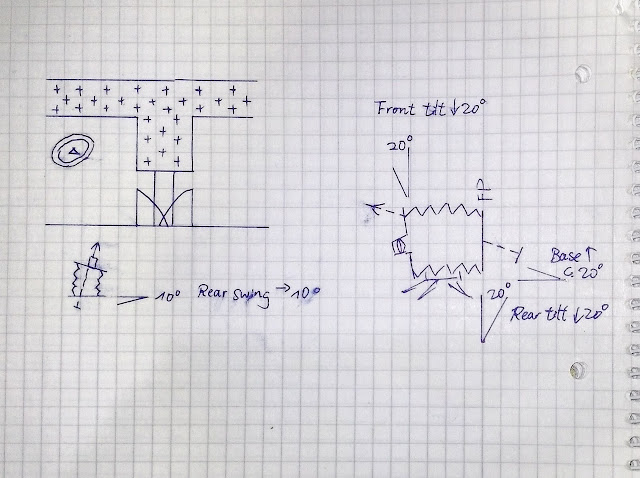 Front tilt ↓20°
20°
FP
Base ↑
↺ 20°
20°
Rear tilt ↓20°
10° Rear swing → 10°